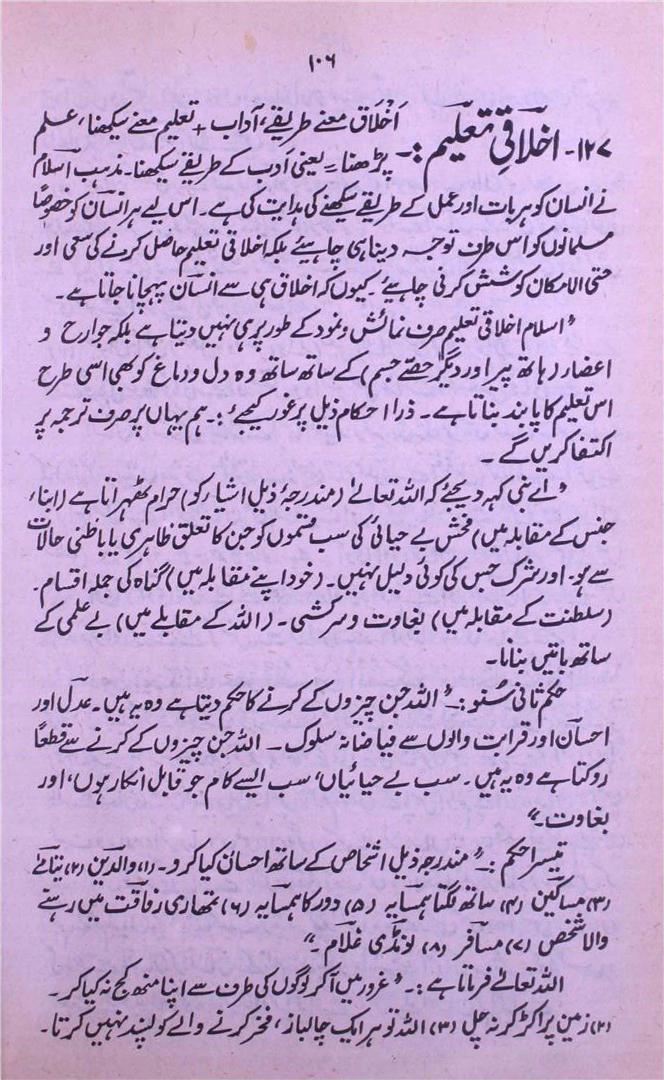 ۱۰۶
۱۲۷- اخلاقی تعلیم :- اَخْلَاق معنے طریقے، آداب + تعلیم معنے سیکھنا، علم
پڑھنا = یعنی ادب کے طریقے سیکھنا۔ مذہب اسلام
نے انسان کو ہر بات اور عمل کے طریقے سیکھنے کی ہدایت کی ہے۔ اس لیے ہر انسان کو خصوصًا
مسلمانوں کو اس طرف توجہ دینا ہی چاہیئے بلکہ اخلاقی تعلیم حاصل کرنے کی سعی اور
حتی الامکان کوشش کرنی چاہیئے کیوں کہ اخلاق ہی سے انسان پہچانا جاتا ہے۔
"اسلام اخلاقی تعلیم صرف نمائش ونمود کے طور پر ہی نہیں دیتا ہے بلکہ جوارح و
اعضار (ہاتھ پیر اور دیگر حصّے جسم) کے ساتھ ساتھ وہ دل و دماغ کو بھی اسی طرح
اس تعلیم کا پابند بناتا ہے۔ ذرا احکام ذیل پر غور کیجیے :۔ ہم یہاں پر صرف ترجمہ پر
اکتفا کریں گے۔
"اے نبی کہہ دیجئے کہ اللہ تعالےٰ (مندرجۂ ذیل اشیاء کو) حرام ٹھہراتا ہے (ابناء
جنس کے مقابلہ میں) فحش بے حیائی کی سب قسموں کو جن کا تعلق ظاہری یا باطنی حالات
سے ہو۔ اور شرک جس کی کوئی دلیل نہیں۔ (خود اپنے مقابلہ میں) گناہ کی جملہ اقسام۔
(سلطنت کے مقابلہ میں) بغاوت و سرکشی۔ (اللہ کے مقابلے میں) بے علمی کے
ساتھ باتیں بنانا۔
حکم ثانی سُنو :۔ "اللہ جن چیزوں کے کرنے کا حکم دیتا ہے وہ یہ ہیں۔ عدل اور
احسان اور قرابت والوں سے فیاضانہ سلوک۔ اللہ جن چیزوں کے کرنے سے قطعًا
روکتا ہے وہ یہ ہیں۔ سب بے حیائیاں، سب ایسے کام جو قابل انکار ہوں، اور
بغاوت۔"
تیسرا حکم :۔ "مندرجہ ذیل اشخاص کے ساتھ احسان کیا کرو۔ (۱) والدین (۲) یتامےٰ
(۳) مساکین (۴) ساتھ لگتا ہمسایہ (۵) دور کا ہمسایہ (۶) تمھاری رفاقت میں رہنے
والا شخص (۷) مسافر (۸) لونڈی غلام۔"
اللہ تعالےٰ فرماتا ہے :۔ "غرور میں آکر لوگوں کی طرف سے اپنا منھ کج نہ کیا کر۔
(۲) زمین پر اکڑ کر نہ چل (۳) اللہ تو ہر ایک چالباز، فخر کرنے والے کو پسند نہیں کرتا۔